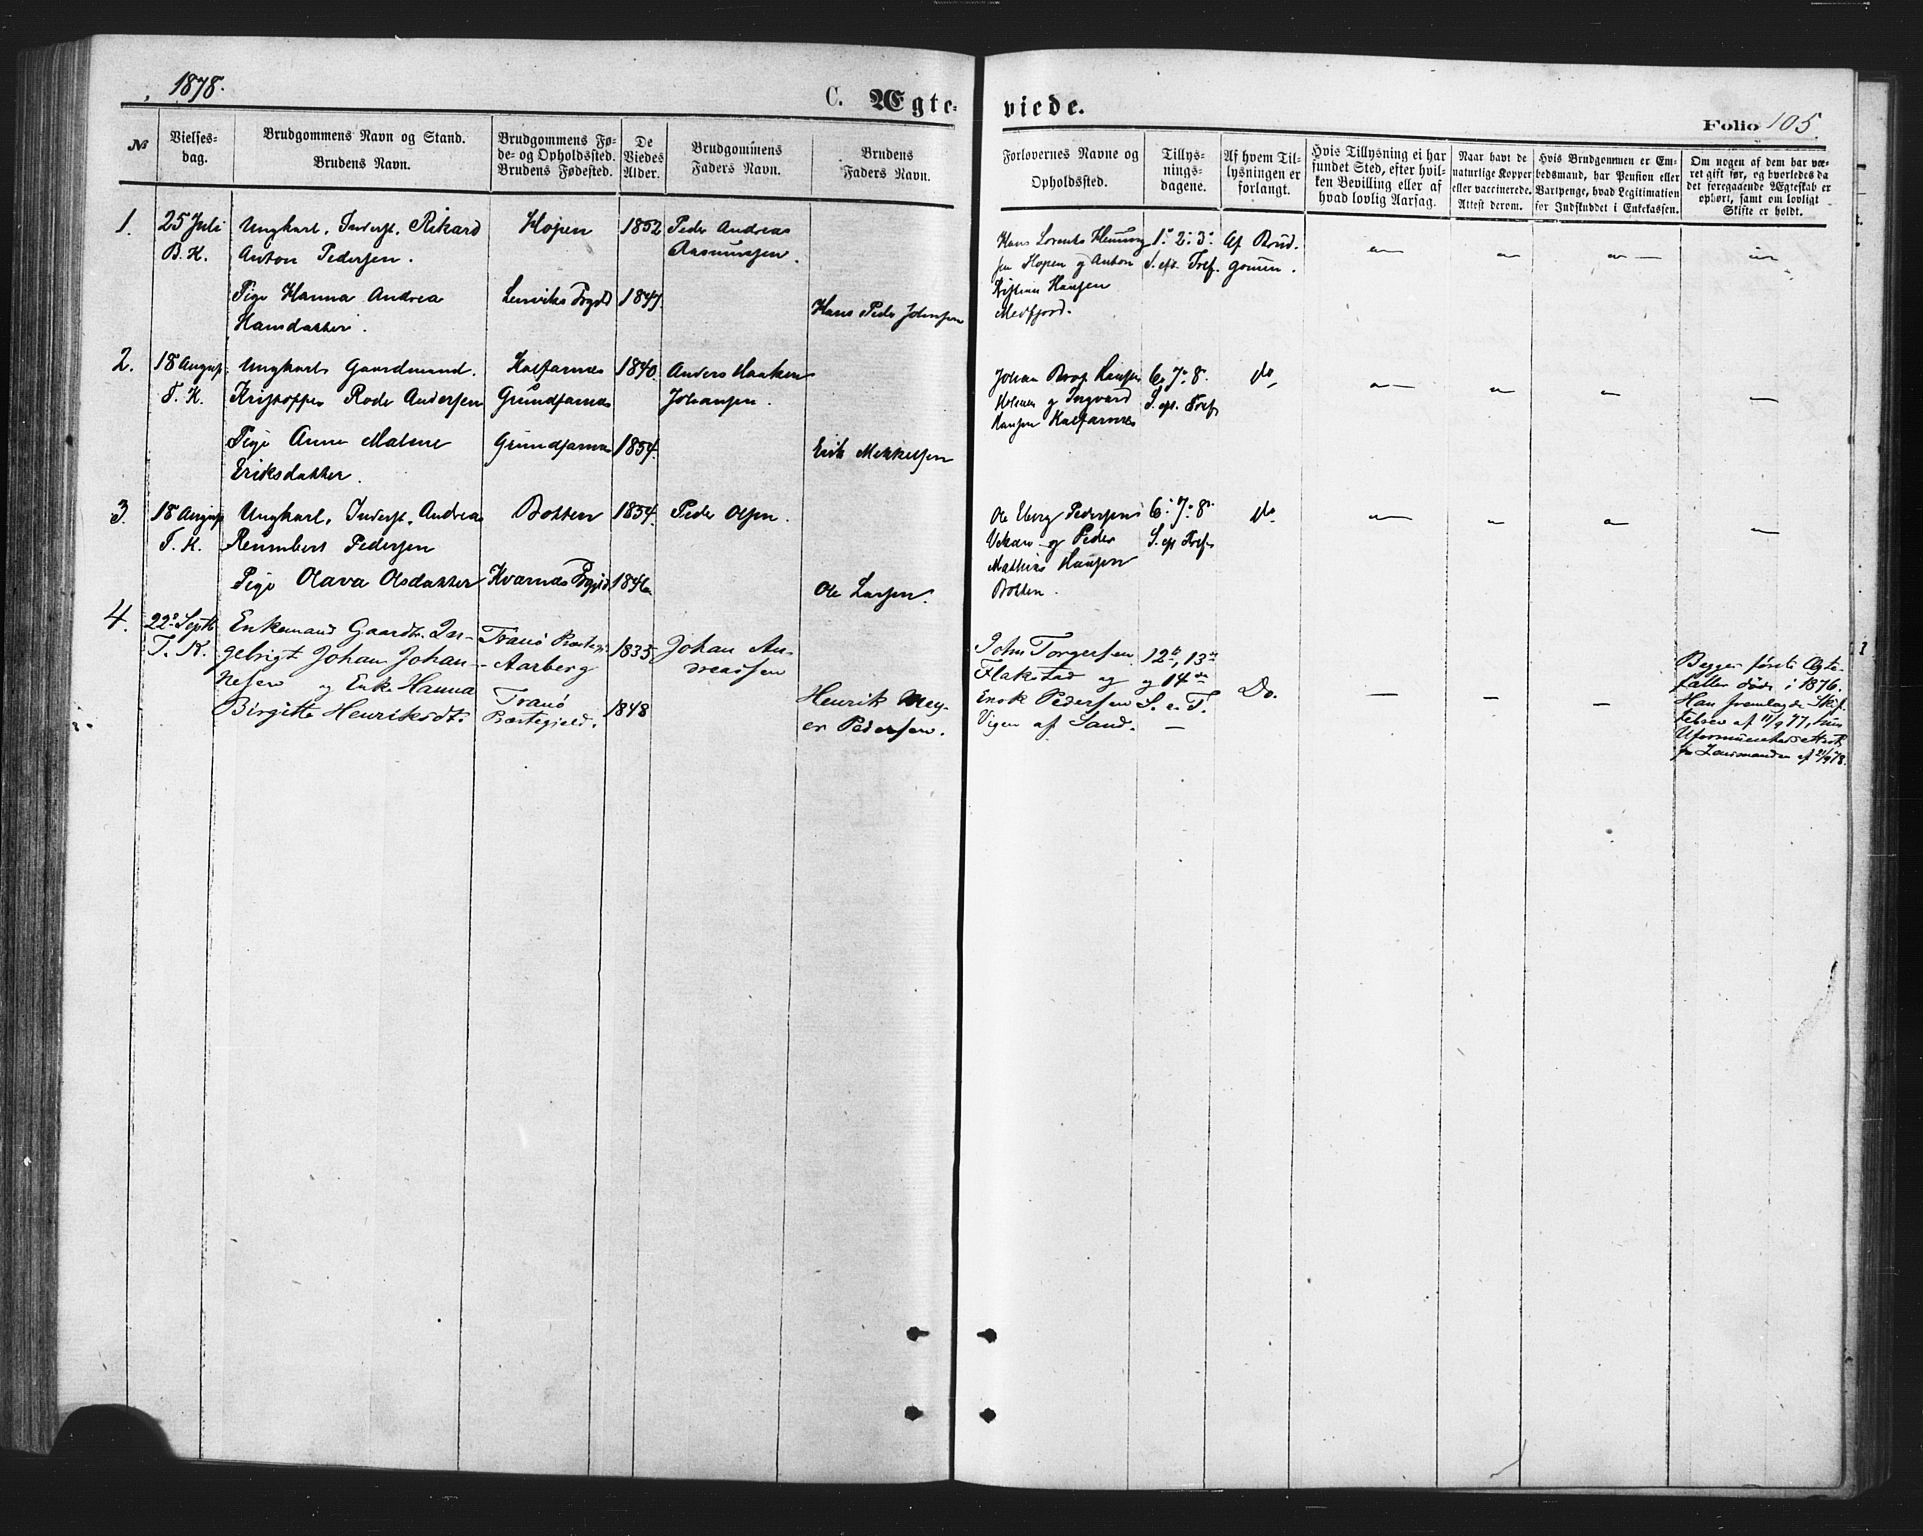 1878.
C. Ægte-
viede.
Folio 105.
№
Vielses-
dag.
Brudgommens Navn og Stand.
Brudens Navn.
Brudgommens Fø-
de- og Opholdssted.
Brudens Fødested.
De
Viedes
Alder.
Brudgommens
Faders Navn.
Brudens
Faders Navn.
Forlovernes Navne og
Opholdssted.
Tillys-
nings-
dagene.
Af hvem Til-
lysningen er
forlangt.
Hvis Tillysning ei har
fundet Sted, efter hvil-
ken Bevilling eller af
hvad lovlig Aarsag.
Naar havt de
naturlige Kopper
eller vaccinerede.
Attest derom.
Hvis Brudgommen er Em-
bedsmand, har Pension eller
Vartpenge, hvad Legitimation
for Indskuddet i Enkekassen.
Om nogen af dem har væ-
ret gift før, og hvorledes da
det foregaaende Ægteskab er
ophørt, samt om lovligt
Skifte er holdt.
1.
25 Juli
B. K.
Ungkarl, Inderst, Rikard
Anton Pedersen.
Pige Hanna Andrea
Hansdatter.
Hopen
Lenviks Prgjld
1852
1847.
Peder Andreas
Rasmussen.
Hans Peder Johnsen
Hans Lorents Henning
sen Hopen og Anton
Kristian Hansen
Medfjord.
1. 2. 3.
S. eft. Tref.
Af Brud-
gommen.
2.
18 August
T. K.
Ungkarl Gaardmand.
Kristoffer Rode Andersen
Pige Anne Malene
Eriksdatter.
Kalfarnes
Grundfarnes
Grundfarnes
1840.
1854.
Anders Haaken
Johansen.
Erik Mikkelsen
Johan Hansen
og Ingvard
Hansen Kalfarnes
6. 7. 8.
S. eft. Tref.
do
3.
18 August
T. K.
Ungkarl, Inderst, Andreas
Reinbert Pedersen
Pige Olava Olsdatter
Botten
Kvarnes Prgjld
1854.
1846
Peder Olsen.
Ole Larsen.
Ole Eberg Pedersen
og Peder
Mathias Hansen
Botten.
6. 7. 8.
S. eft. Tref.
do
4.
22. Septb
T. K.
Enkemand Gaardb. In-
gebrigt Johan Johan-
nesen og Enke Hanna
Birgitte Henriksdt.
Tranø Præstegj.
Aarberg
Tranø
Præstegjeld.
1835
1848
Johan An-
dreassen
Henrik Mey-
er Pedersen.
John Torgersen
Flakstad og
Enok Pedersen
Vigen af Sand.
12te, 13de
og 14de
S. e. T.
Do.
Begges første Ægte-
fæller døde i 1876.
Han fremlagde Skif-
tebrev af 11/9 77, hun
Uformuenheds Attest
fra Lensmanden af 21/9 78.